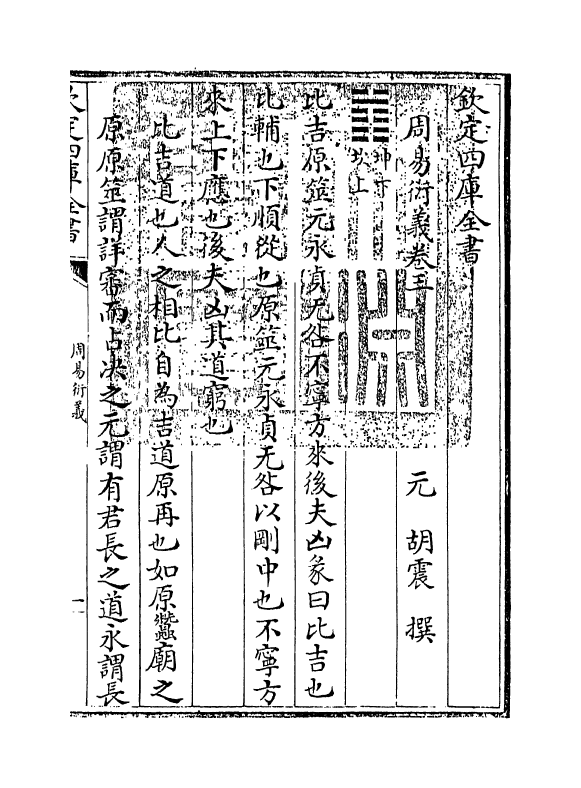 欽定四庫全書
周易衍義卷三 元 胡震 撰
坤下
坎上
比吉原筮元永貞无咎不寧方來後夫凶彖曰比吉也
比輔也下順從也原筮元永貞无咎以剛中也不寧方
來上下應也後夫凶其道窮也
比吉道也人之相比自為吉道原再也如原蠶廟之
原原筮謂詳審而占决之元謂有君長之道永謂長
欽定四庫全書
周易衍義
一